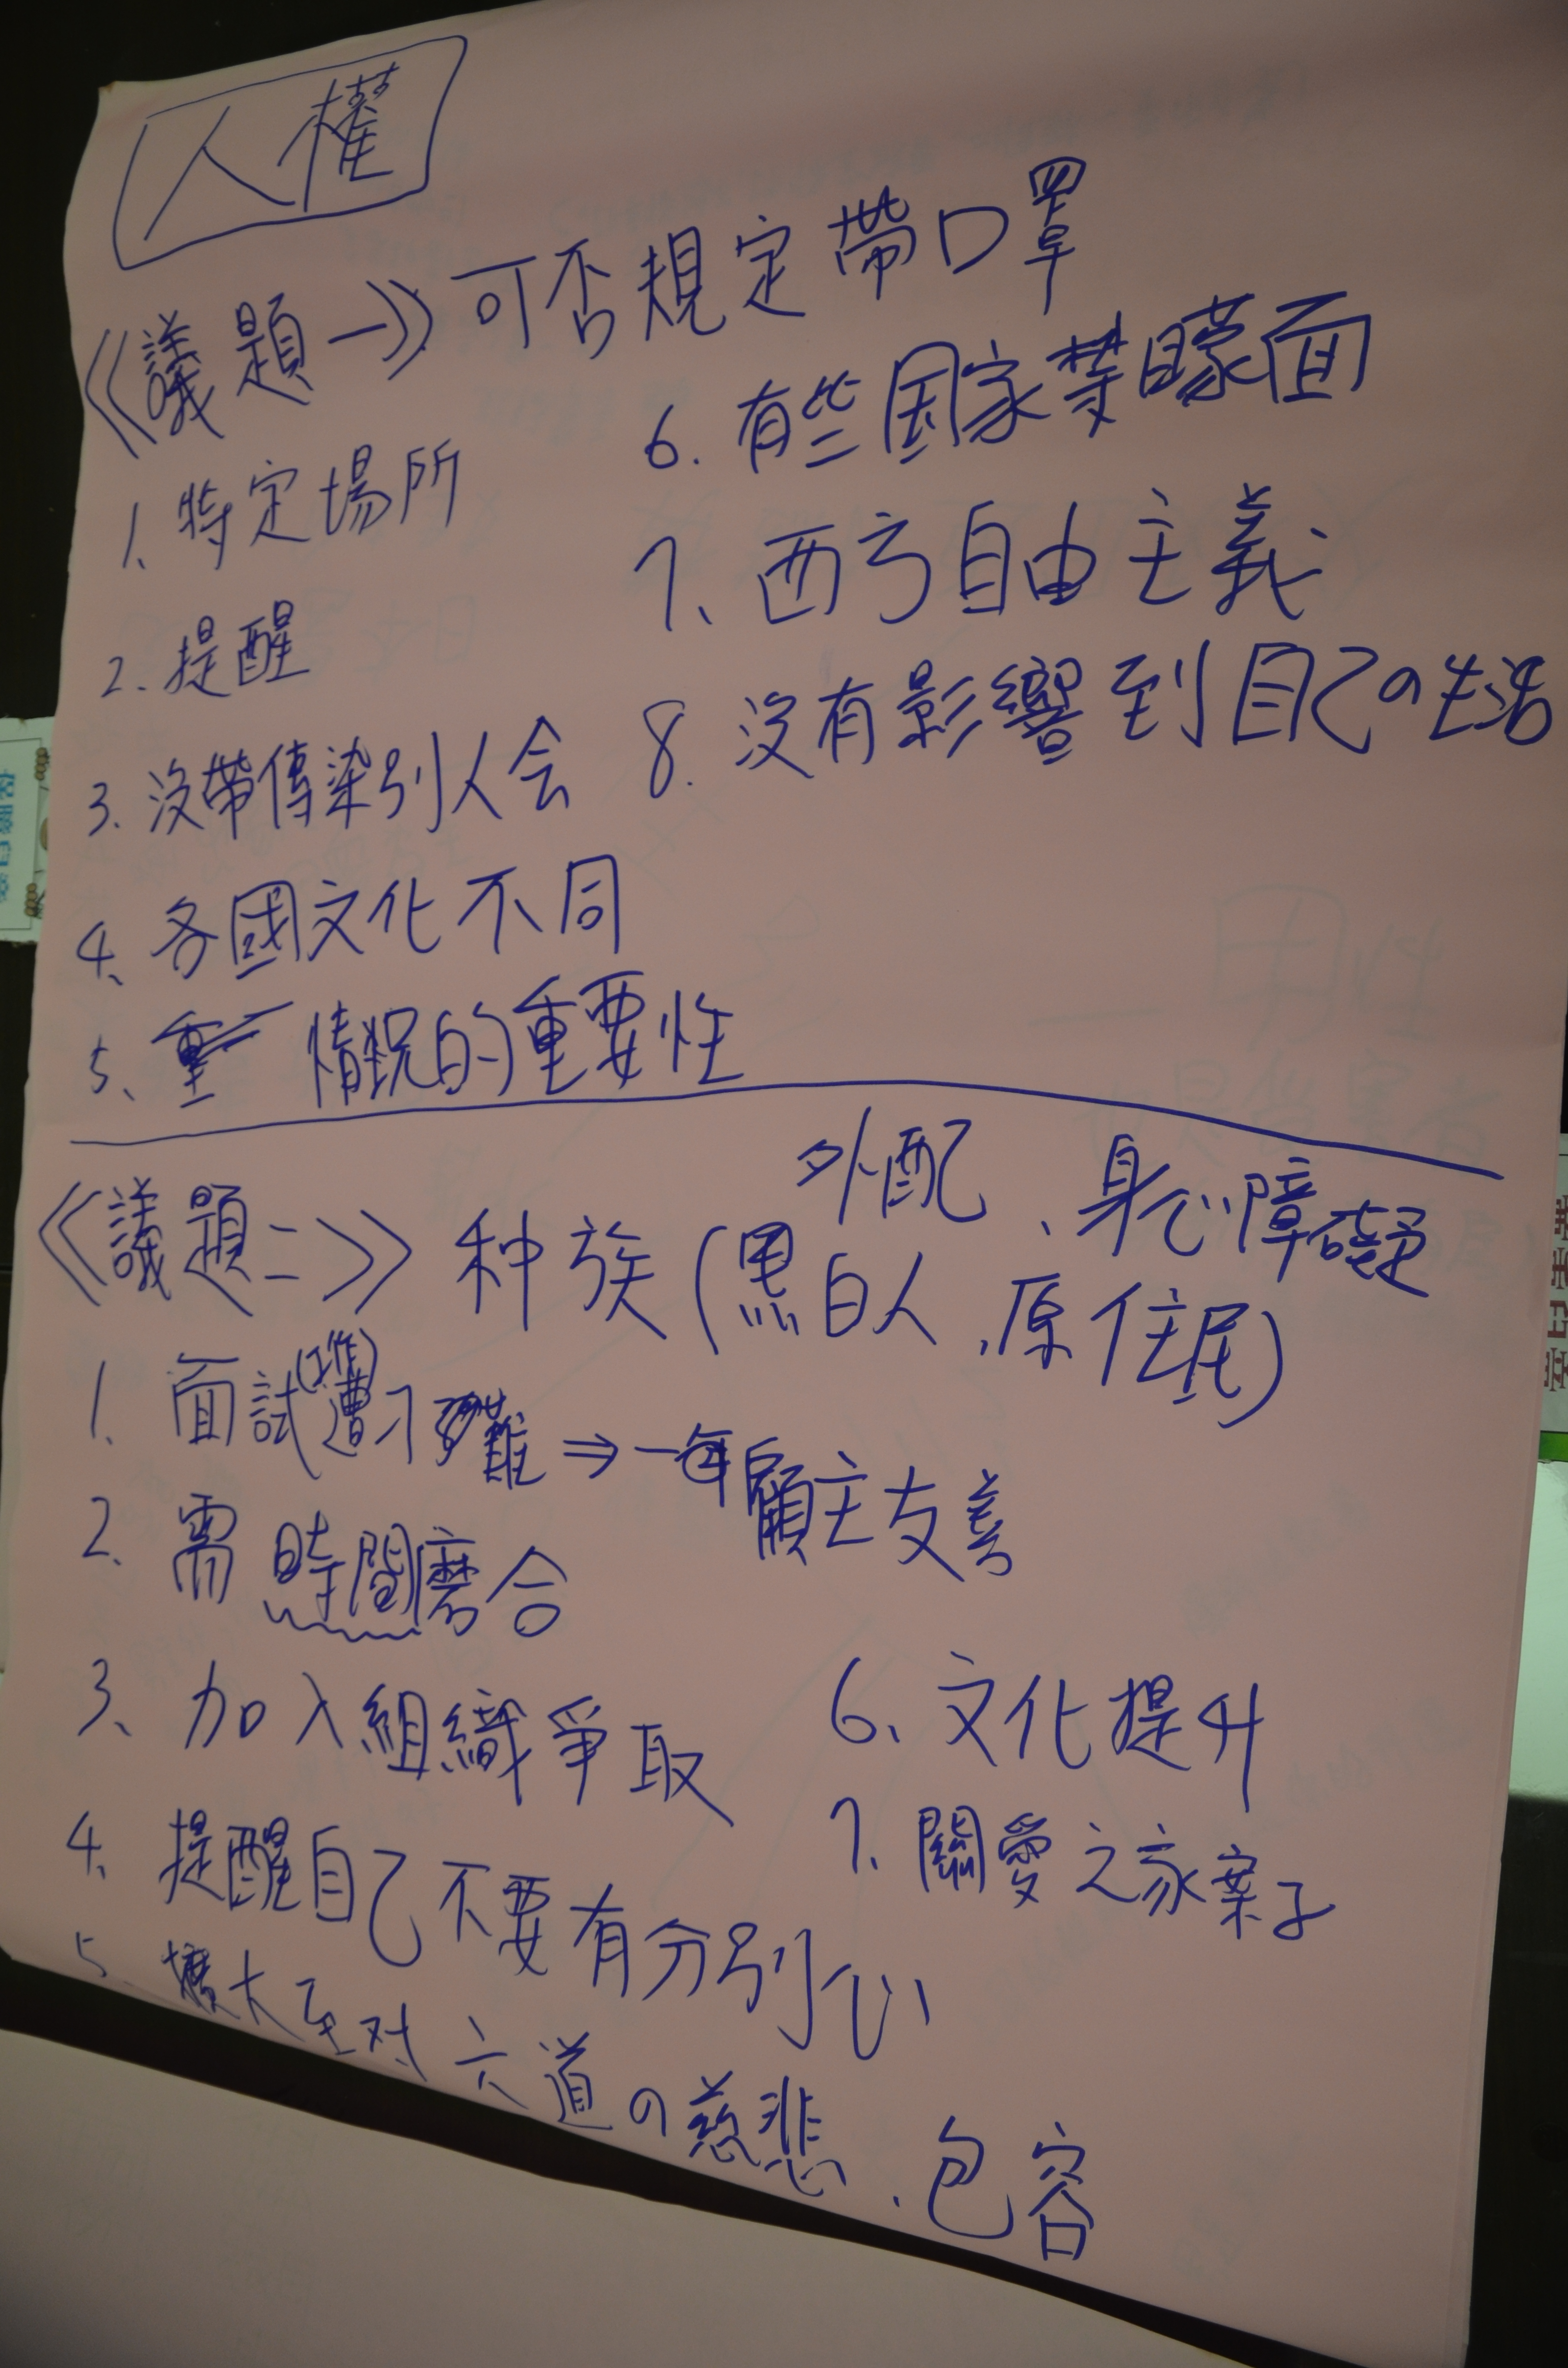 人權
《議題一》可否規定帶口罩
1. 特定場所
2. 提醒
3. 沒帶傳染別人会
4、各國文化不同
5、重 情況的重要性
6. 有些国家禁矇面
7、西方自由主義
8. 沒有影響到自己の生活
《議題二》种族(黑白人、原住民)
外配、身心障礙
1. 面試(工作)遭刁難⇒一年 顧主友善
2、需時間磨合
3、加入組織爭取
4、提醒自己不要有分別心
5、擴大至对六道の慈悲、包容
6、文化提升
7、關愛之家案子